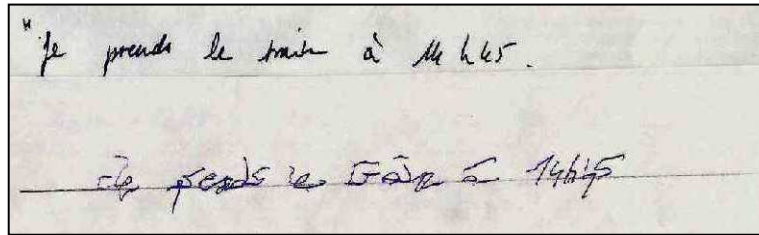 "Je prends le train à 14h45.
Je prends le train à 14h45